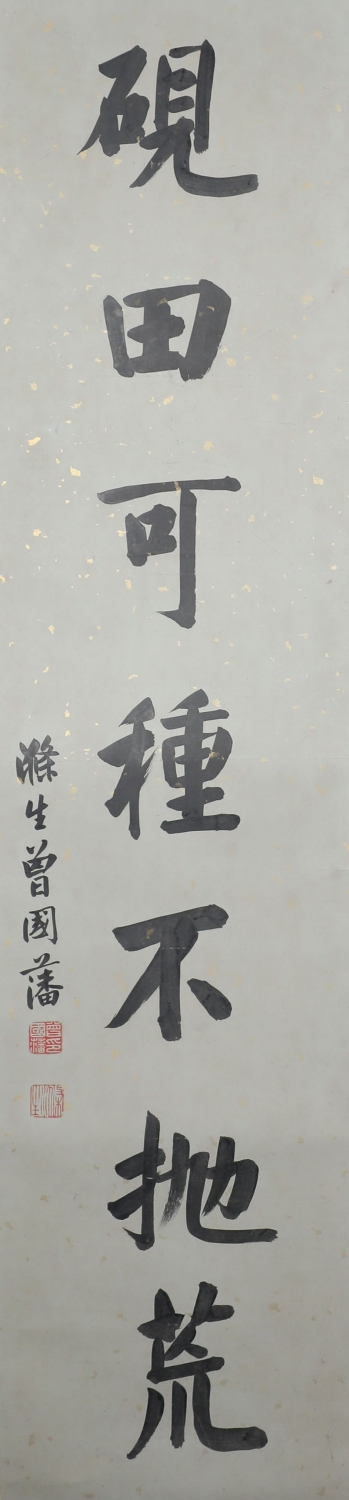 硯田可種不抛荒
滌生曾國藩